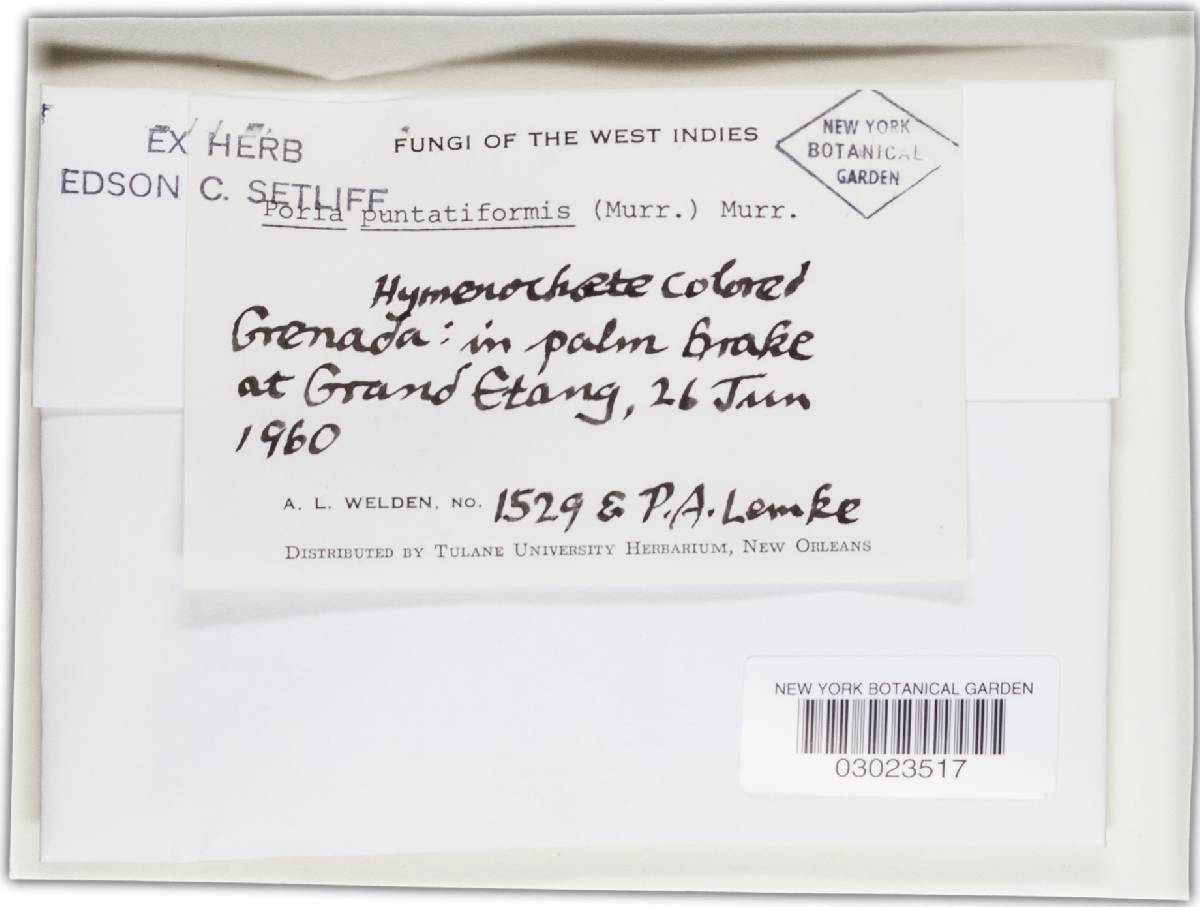 EX HERB
EDSON C. SETLIFF
FUNGI OF THE WEST INDIES
NEW YORK
BOTANICAL
GARDEN
Poria puntatiformis (Murr.) Murr.
Hymenochaete colored
Grenada: in palm brake
at Grand Etang, 26 Jun
1960
A. L. WELDEN, NO. 1529 & P.A. Lemke
DISTRIBUTED BY TULANE UNIVERSITY HERBARIUM, NEW ORLEANS
NEW YORK BOTANICAL GARDEN
03023517